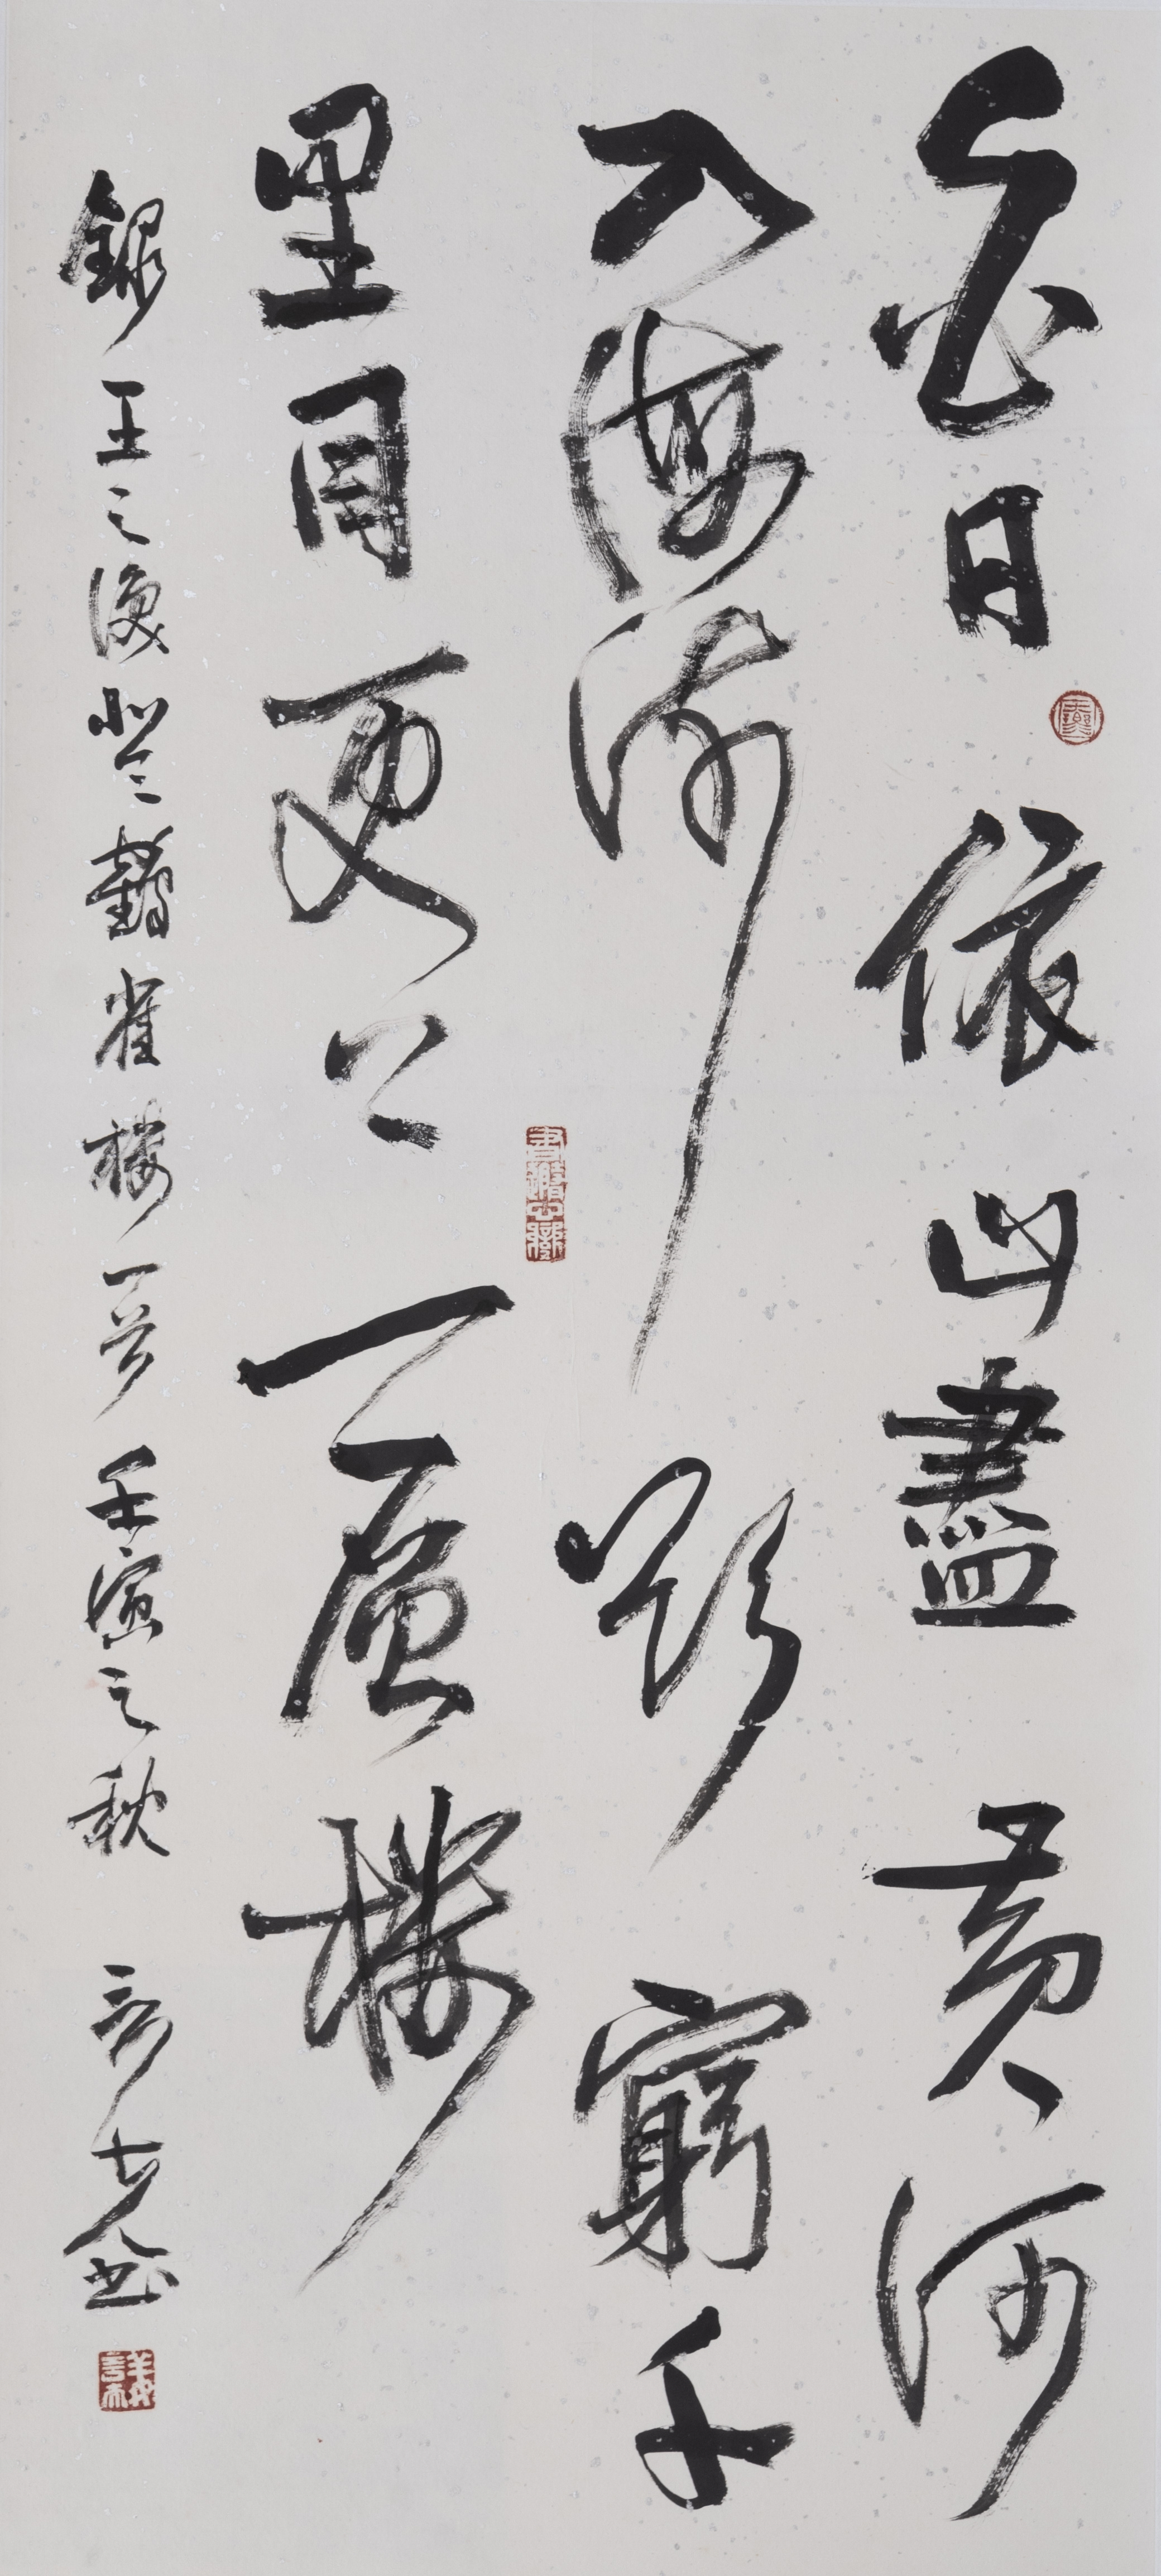 白日依山盡黃河
入海流欲窮千
里目更上一層樓
錄王之渙登鸛雀樓一首壬寅之秋